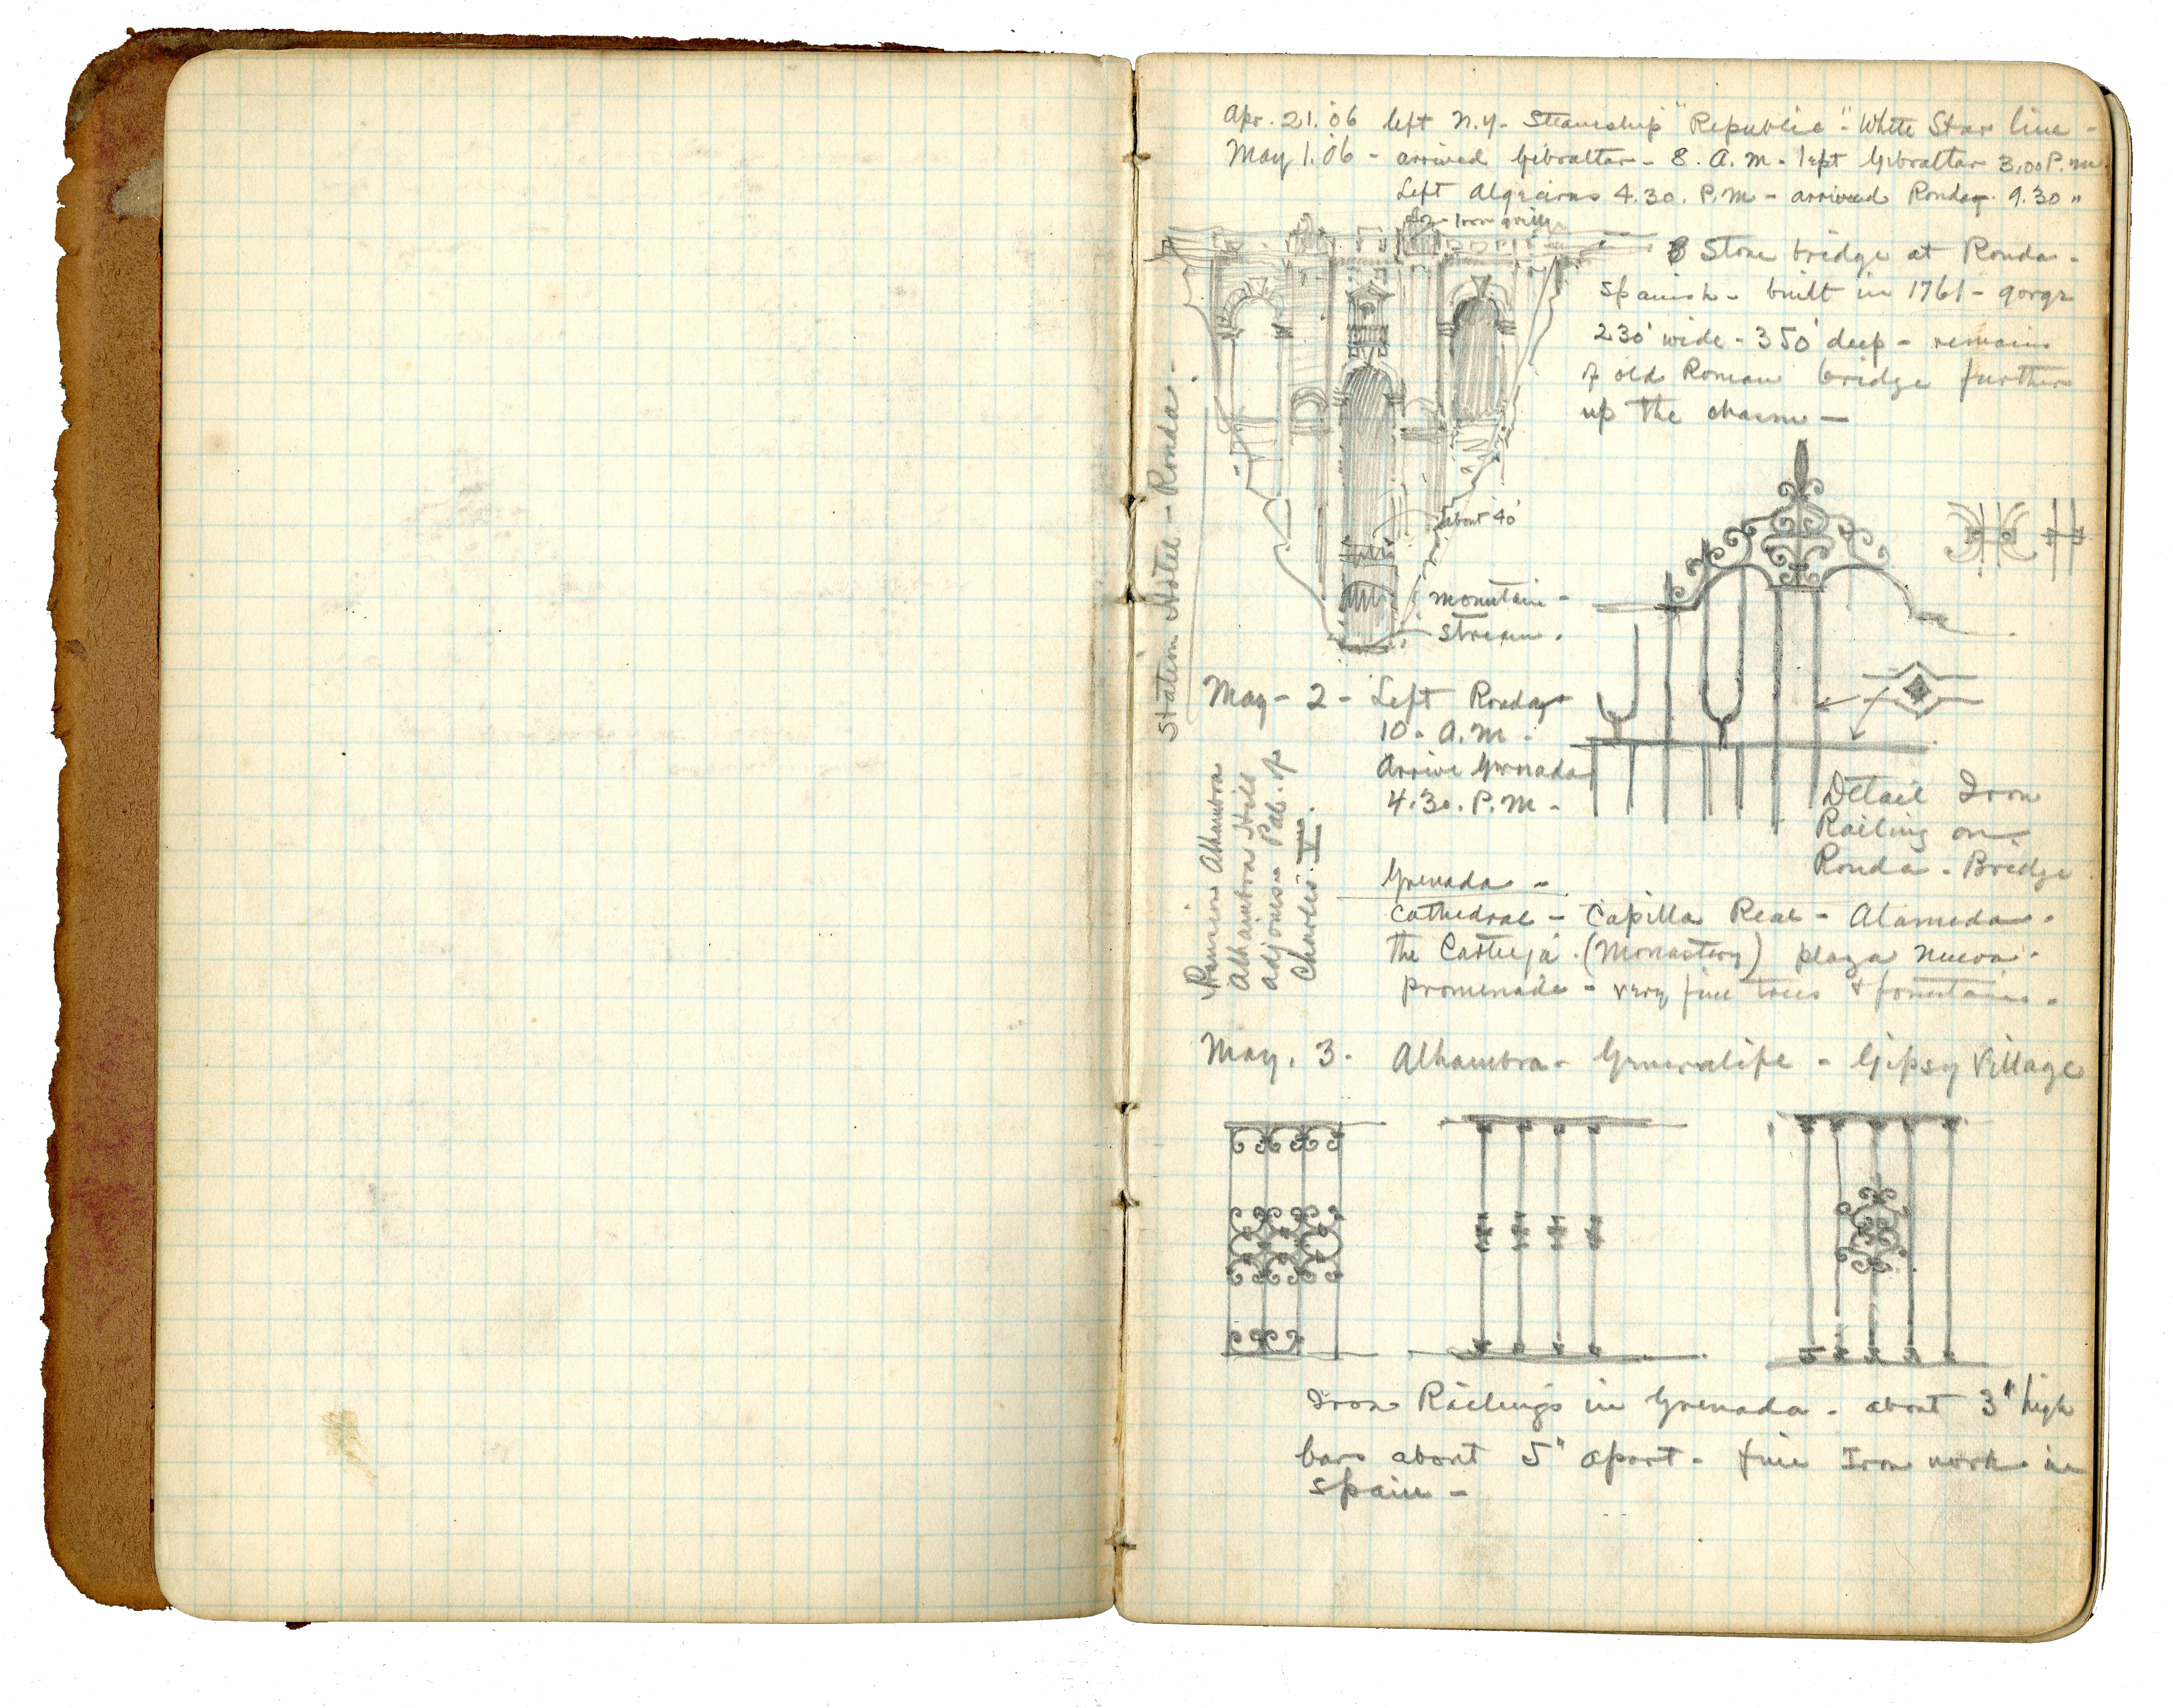 Apr. 21. '06 left N.Y. Steamship "Republic" - White Star line -
May 1. '06 - arrived Gibraltar - 8. A.M. left Gibraltar 3,00 P.M.
Left Algeciras 4.30. P.M - arrived Ronda. 9.30 "
Iron grille
Stone bridge at Ronda -
Spanish - built in 1761 - gorge
230' wide - 350' deep - remains
of old Roman bridge further
up the chasm —
Station Hotel - Ronda -
about 40'
mountain -
stream .
May - 2 - Left Ronda
10 - A.M -
Arrive Grenada
4.30. P.M -
Detail Iron
Railing on
Ronda - Bridge
Pension Alhambra
Alhambra Hill
adjoins Pal. of
Charles V.
Grenada -
Cathedral - Capilla Real - Alameda .
the . (Monastery) plaza nueva .
promenade - very fine trees & fountains .
May. 3. Alhambra - Generalife - Gipsy Village
Iron Railings in Grenada - about 3" high
bars about 5" apart - fine Iron work in
Spain -